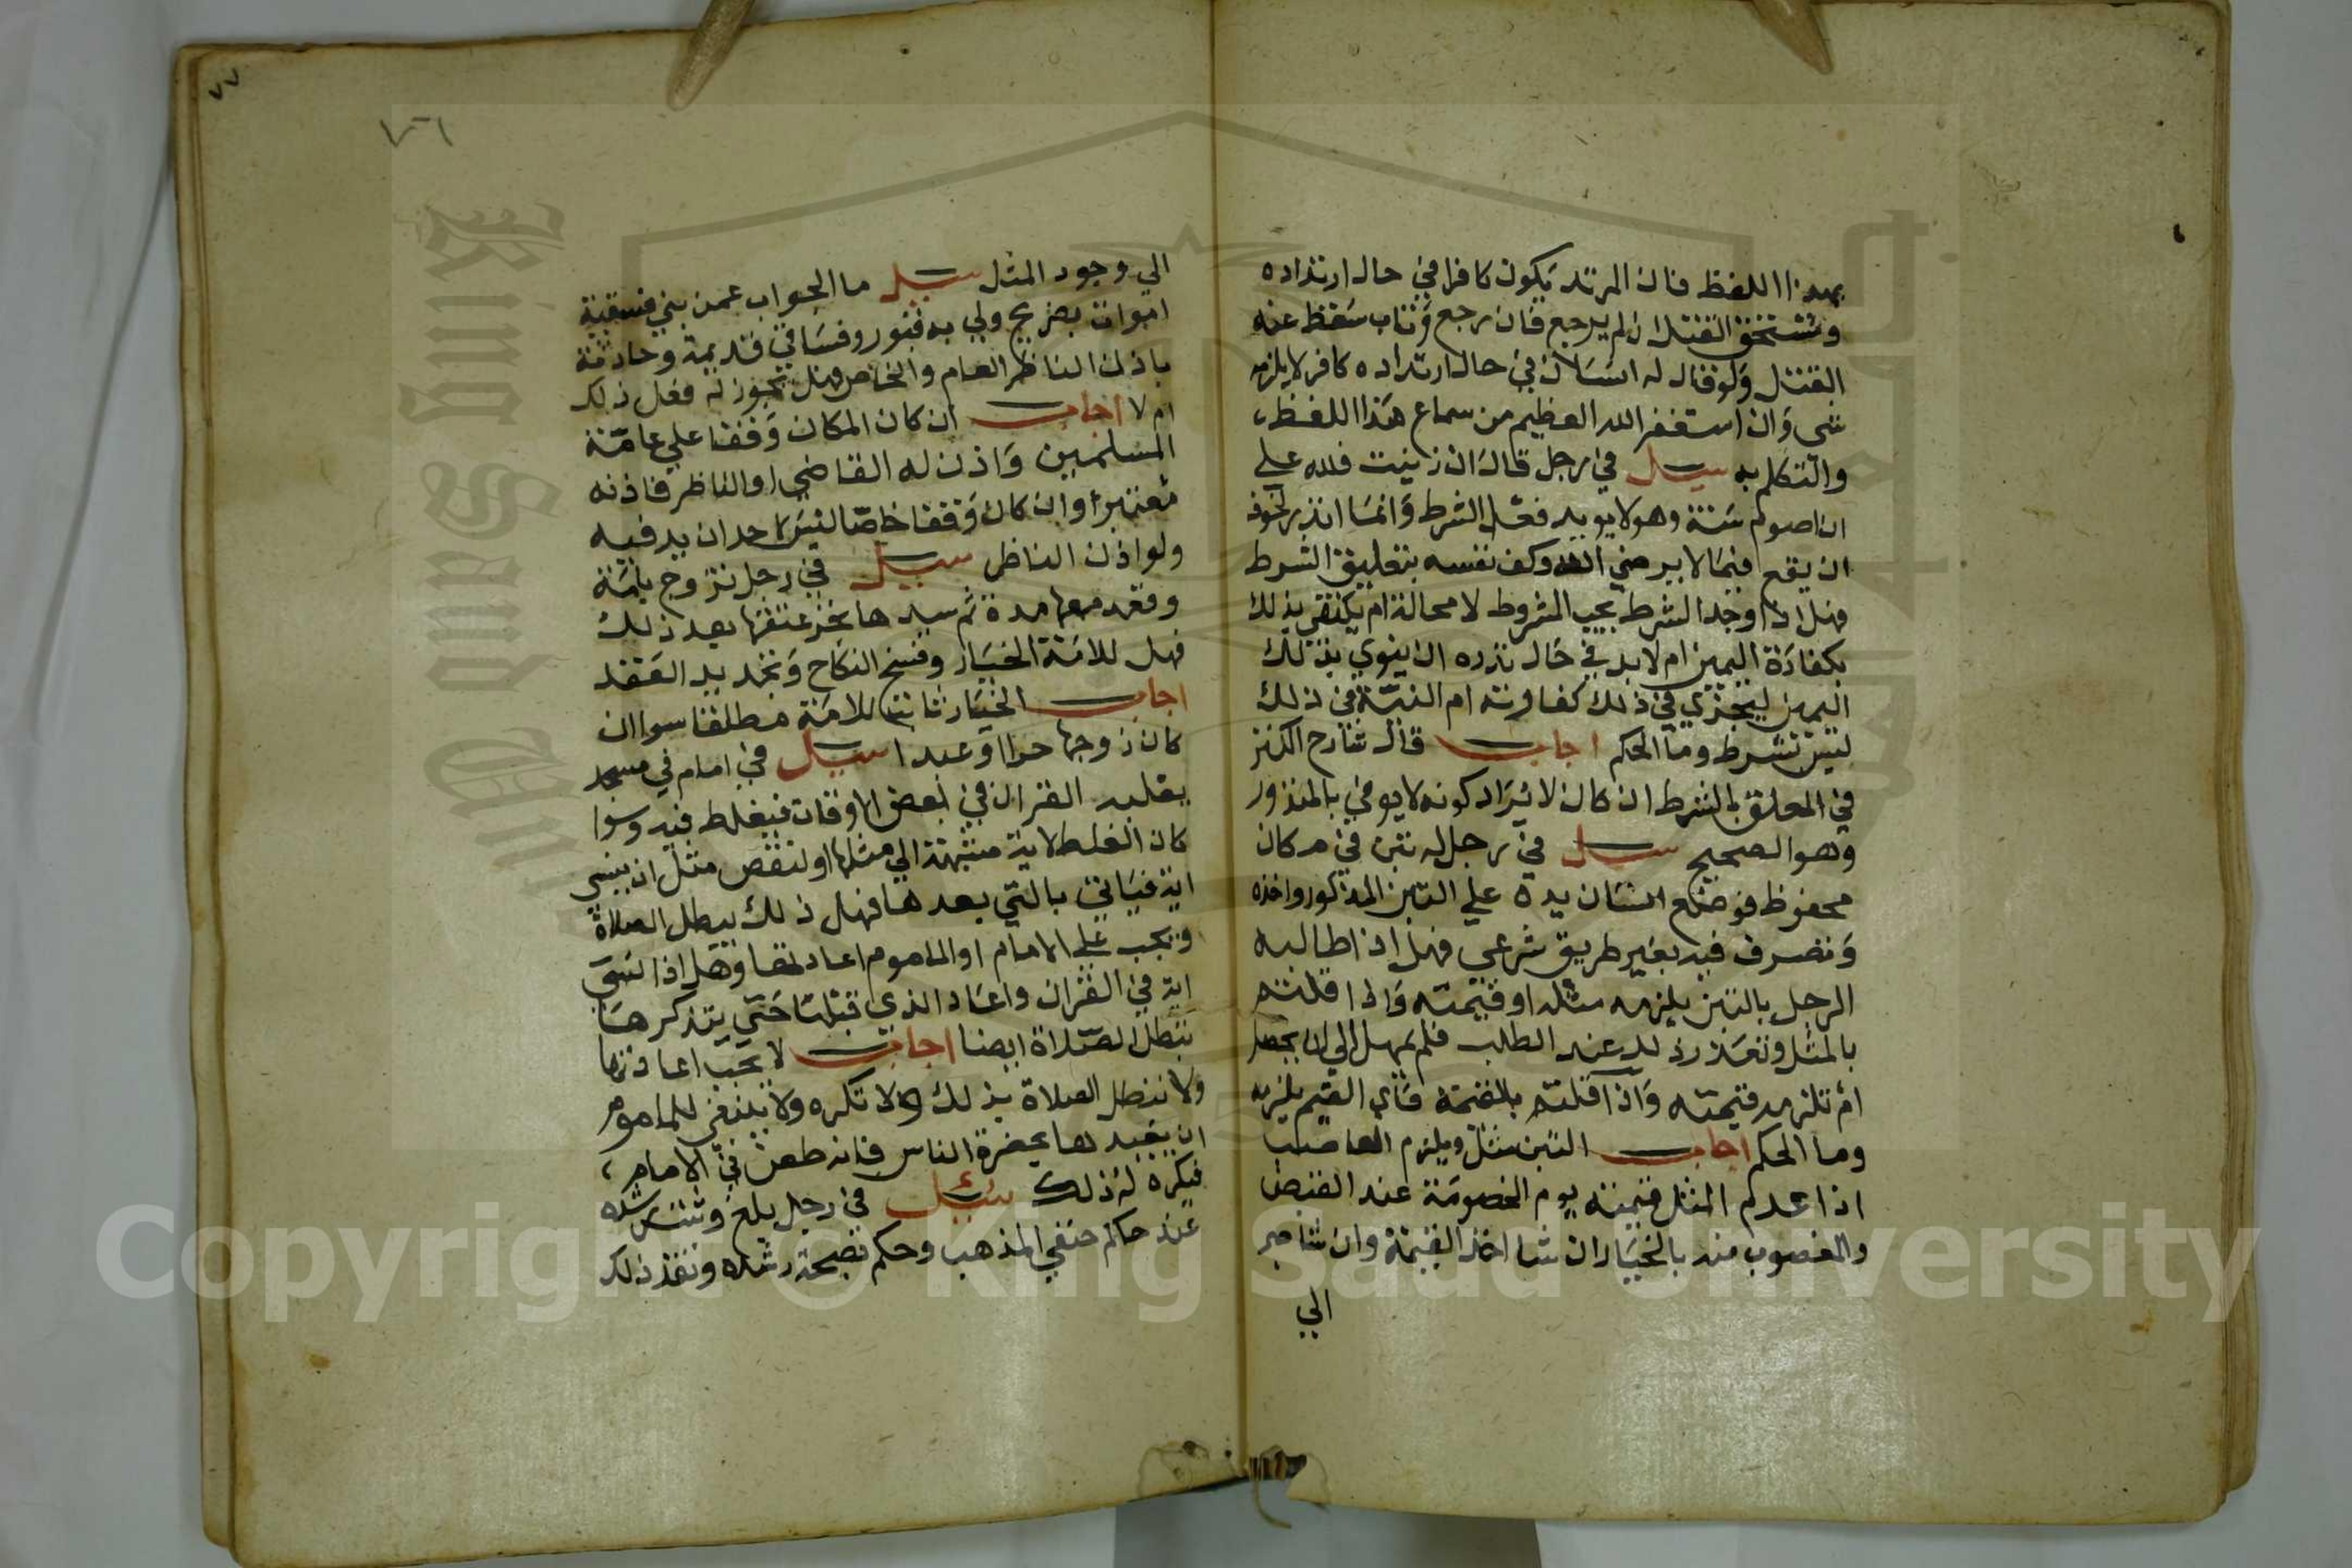 بهذا اللفظ فان المرتد يكون كافرا في حال ارتداده
ويستحق القتل ان لم يرجع فان رجع وتاب سقط عنه
القتل ولو قال له انسان في حال ارتداده كافر لا يلزمه
شي وان استغفر الله العظيم من سماع هذا اللفظ
والتكلم به سيل في رجل قال ان زنيت فلله علي
ان اصوم سنة وهو لا يريد فعل الشرط وانما نذر لخوف
ان يقع فيما لا يرضي الله وكف نفسه بتعليق الشرط
فهل اذا وجد الشرط يجب المشروط لا محالة ام يكتفي بذلك
بكفارة اليمين ام لا بد في حال نذره ان ينوي بذلك
اليمين ليجزي في ذلك كفارته ام النية في ذلك
ليس بشرط وما الحكم اجاب قال شارح الكنز
في المعلق بالشرط ان كان لا يراد كونه لا يوفي بالمنذور
وهو الصحيح سيل في رجل له تبن في مكان
محفوظ فوضع انسان يده علي التبن المذكور واخذه
وتصرف فيه بغير طريق شرعي فهل اذا طالبه
الرجل بالتبن يلزمه مثله او قيمته واذا قلتم
بالمثل وتعذر ذلك عند الطلب فلم يمهل الي ان يحصل
ام تلزمه قيمته واذا قلتم بالقيمة فاي القيم يلزمه
وما الحكم اجاب التبن مثلي ويلزم الغاصب
اذا عدم المثل قيمته يوم الخصومة عند القبض
والمغصوب منه بالخيار ان شا اخذ القيمة وان شا صبر
الي
٧٧
١٧٦
الي وجود المثل سيل ما الجواب عمن بني فسقية
اموات بضريح ولي به قبور وفساقي قديمة وحادثة
باذن الناظر العام والخاص فهل يجوز له فعل ذلك
ام لا اجاب ان كان المكان وقفا علي عامة
المسلمين واذن له القاضي او الناظر فاذنه
معتبر وان كان وقفا خاصا ليس لاحد ان يدفن فيه
ولو اذن الناظر سيل في رجل تزوج بامة
وقعد معها مدة ثم سيدها نجز عتقها بعد ذلك
فهل للامة الخيار وفسخ النكاح وتجديد العقد
اجاب الخيار ثابت للامة مطلقا سوا ان
كان زوجها حرا او عبدا سيل في امام في مسجد
يقلب القران في بعض الاوقات فيغلط فيه وسوا
كان الغلط لاية منتبهة الي مثلها او لنقص مثل ان ينسي
اية فياتي بالتي بعدها فهل ذلك يبطل الصلاة
ويجب علي الامام او الماموم اعادتها وهل اذا نسي
اية في القران واعاد الذي قبلها حتي يتذكرها
تبطل الصلاة ايضا اجاب لا يجب اعادتها
ولا تبطل الصلاة بذلك ولا تكره ولا ينبغي للماموم
ان يعيدها بحضرة الناس فانه طعن في الامام
فيكره له ذلك سئيل في رجل بلغ وثبت رشده
عند حاكم حنفي المذهب وحكم بصحة رشده ونفذ ذلك
Copyright © King Saud University